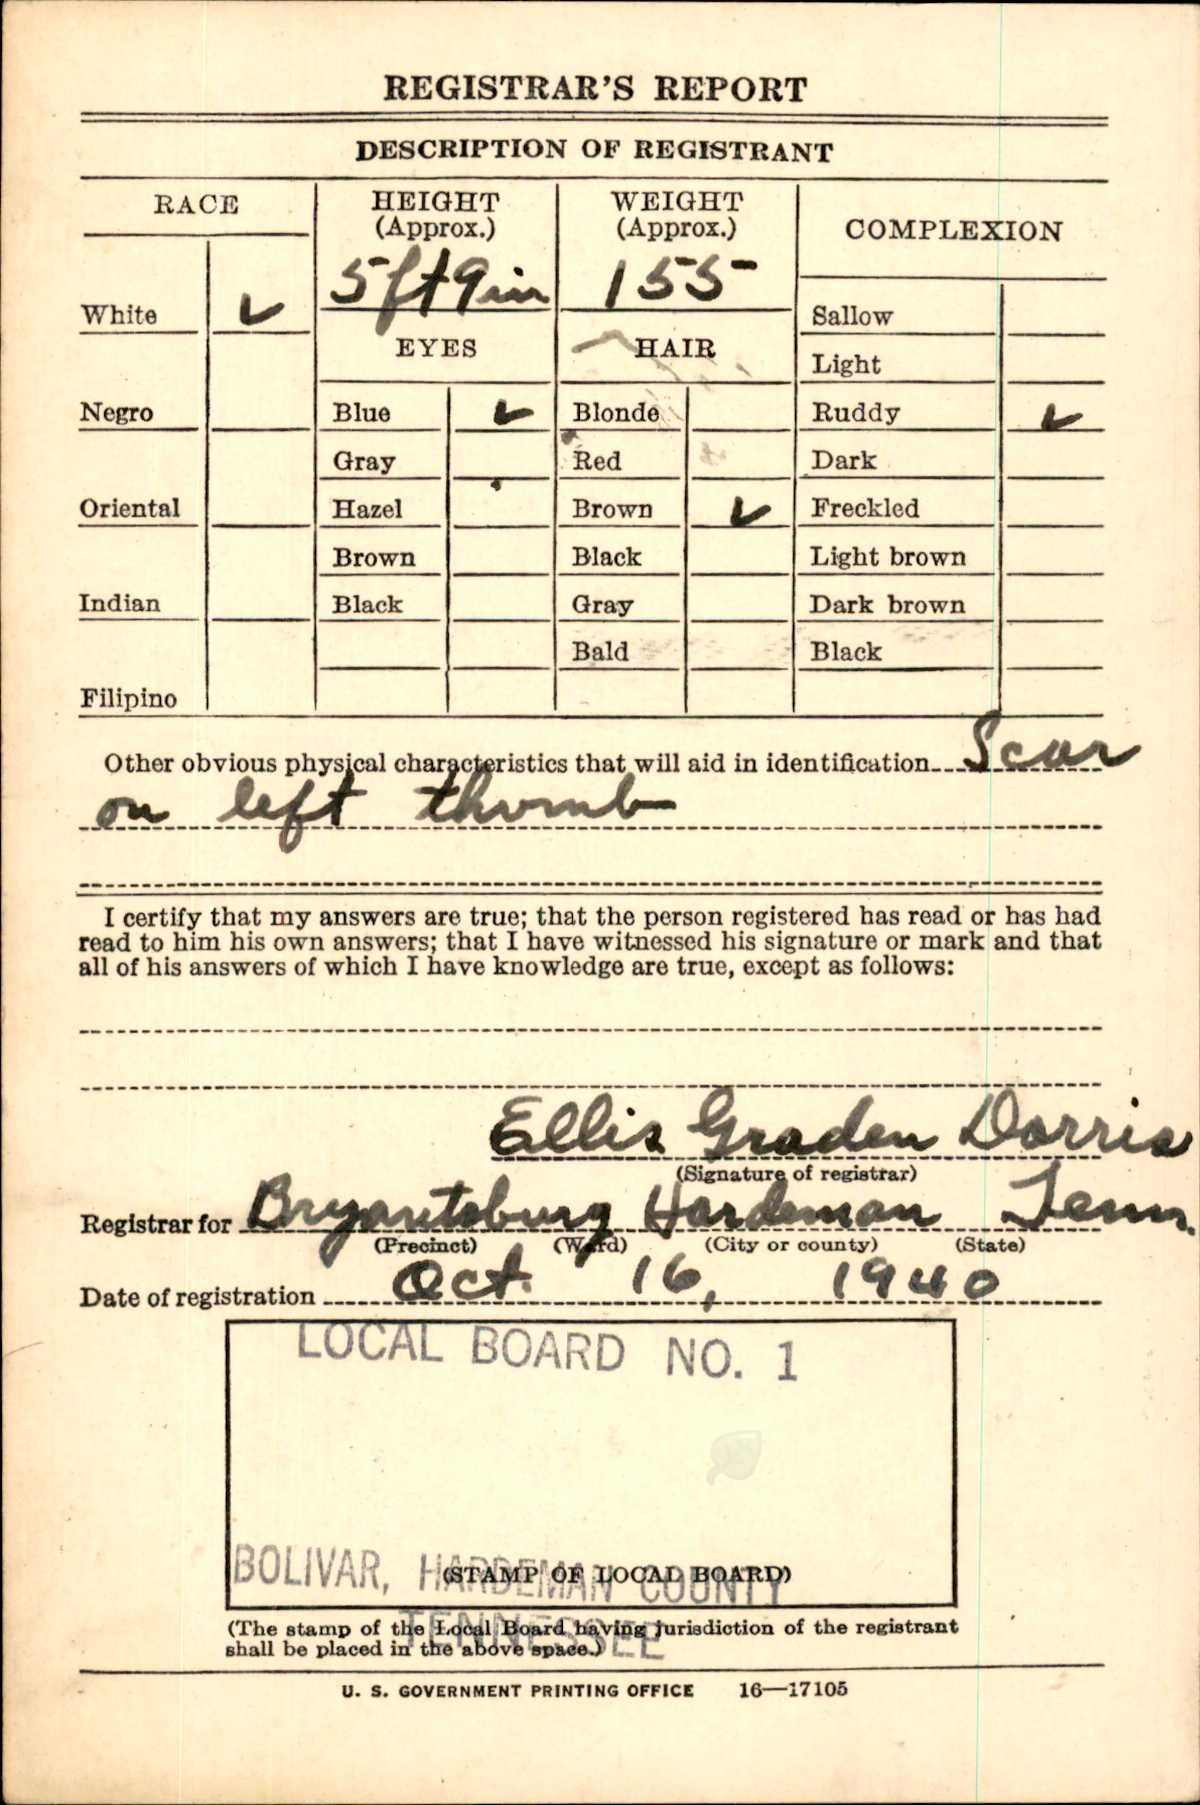 REGISTRAR'S REPORT
DESCRIPTION OF REGISTRANT
RACE
HEIGHT
(Approx.)
WEIGHT
(Approx.)
COMPLEXION
5 ft 9 in
155
White ✓
Sallow
EYES
HAIR
Light
Negro
Blue ✓
Blonde
Ruddy ✓
Gray
Red
Dark
Oriental
Hazel
Brown ✓
Freckled
Brown
Black
Light brown
Indian
Black
Gray
Dark brown
Bald
Black
Filipino
Other obvious physical characteristics that will aid in identification Scar
on left thumb
I certify that my answers are true; that the person registered has read or has had
read to him his own answers; that I have witnessed his signature or mark and that
all of his answers of which I have knowledge are true, except as follows:
Ellis Graden Dorris
(Signature of registrar)
Registrar for Bryantsburg Hardeman Tenn.
(Precinct) (Ward) (City or county) (State)
Date of registration Oct. 16, 1940
LOCAL BOARD NO. 1
BOLIVAR, HARDEMAN COUNTY
(STAMP OF LOCAL BOARD)
TENNESSEE
(The stamp of the Local Board having jurisdiction of the registrant
shall be placed in the above space.)
U. S. GOVERNMENT PRINTING OFFICE 16—17105